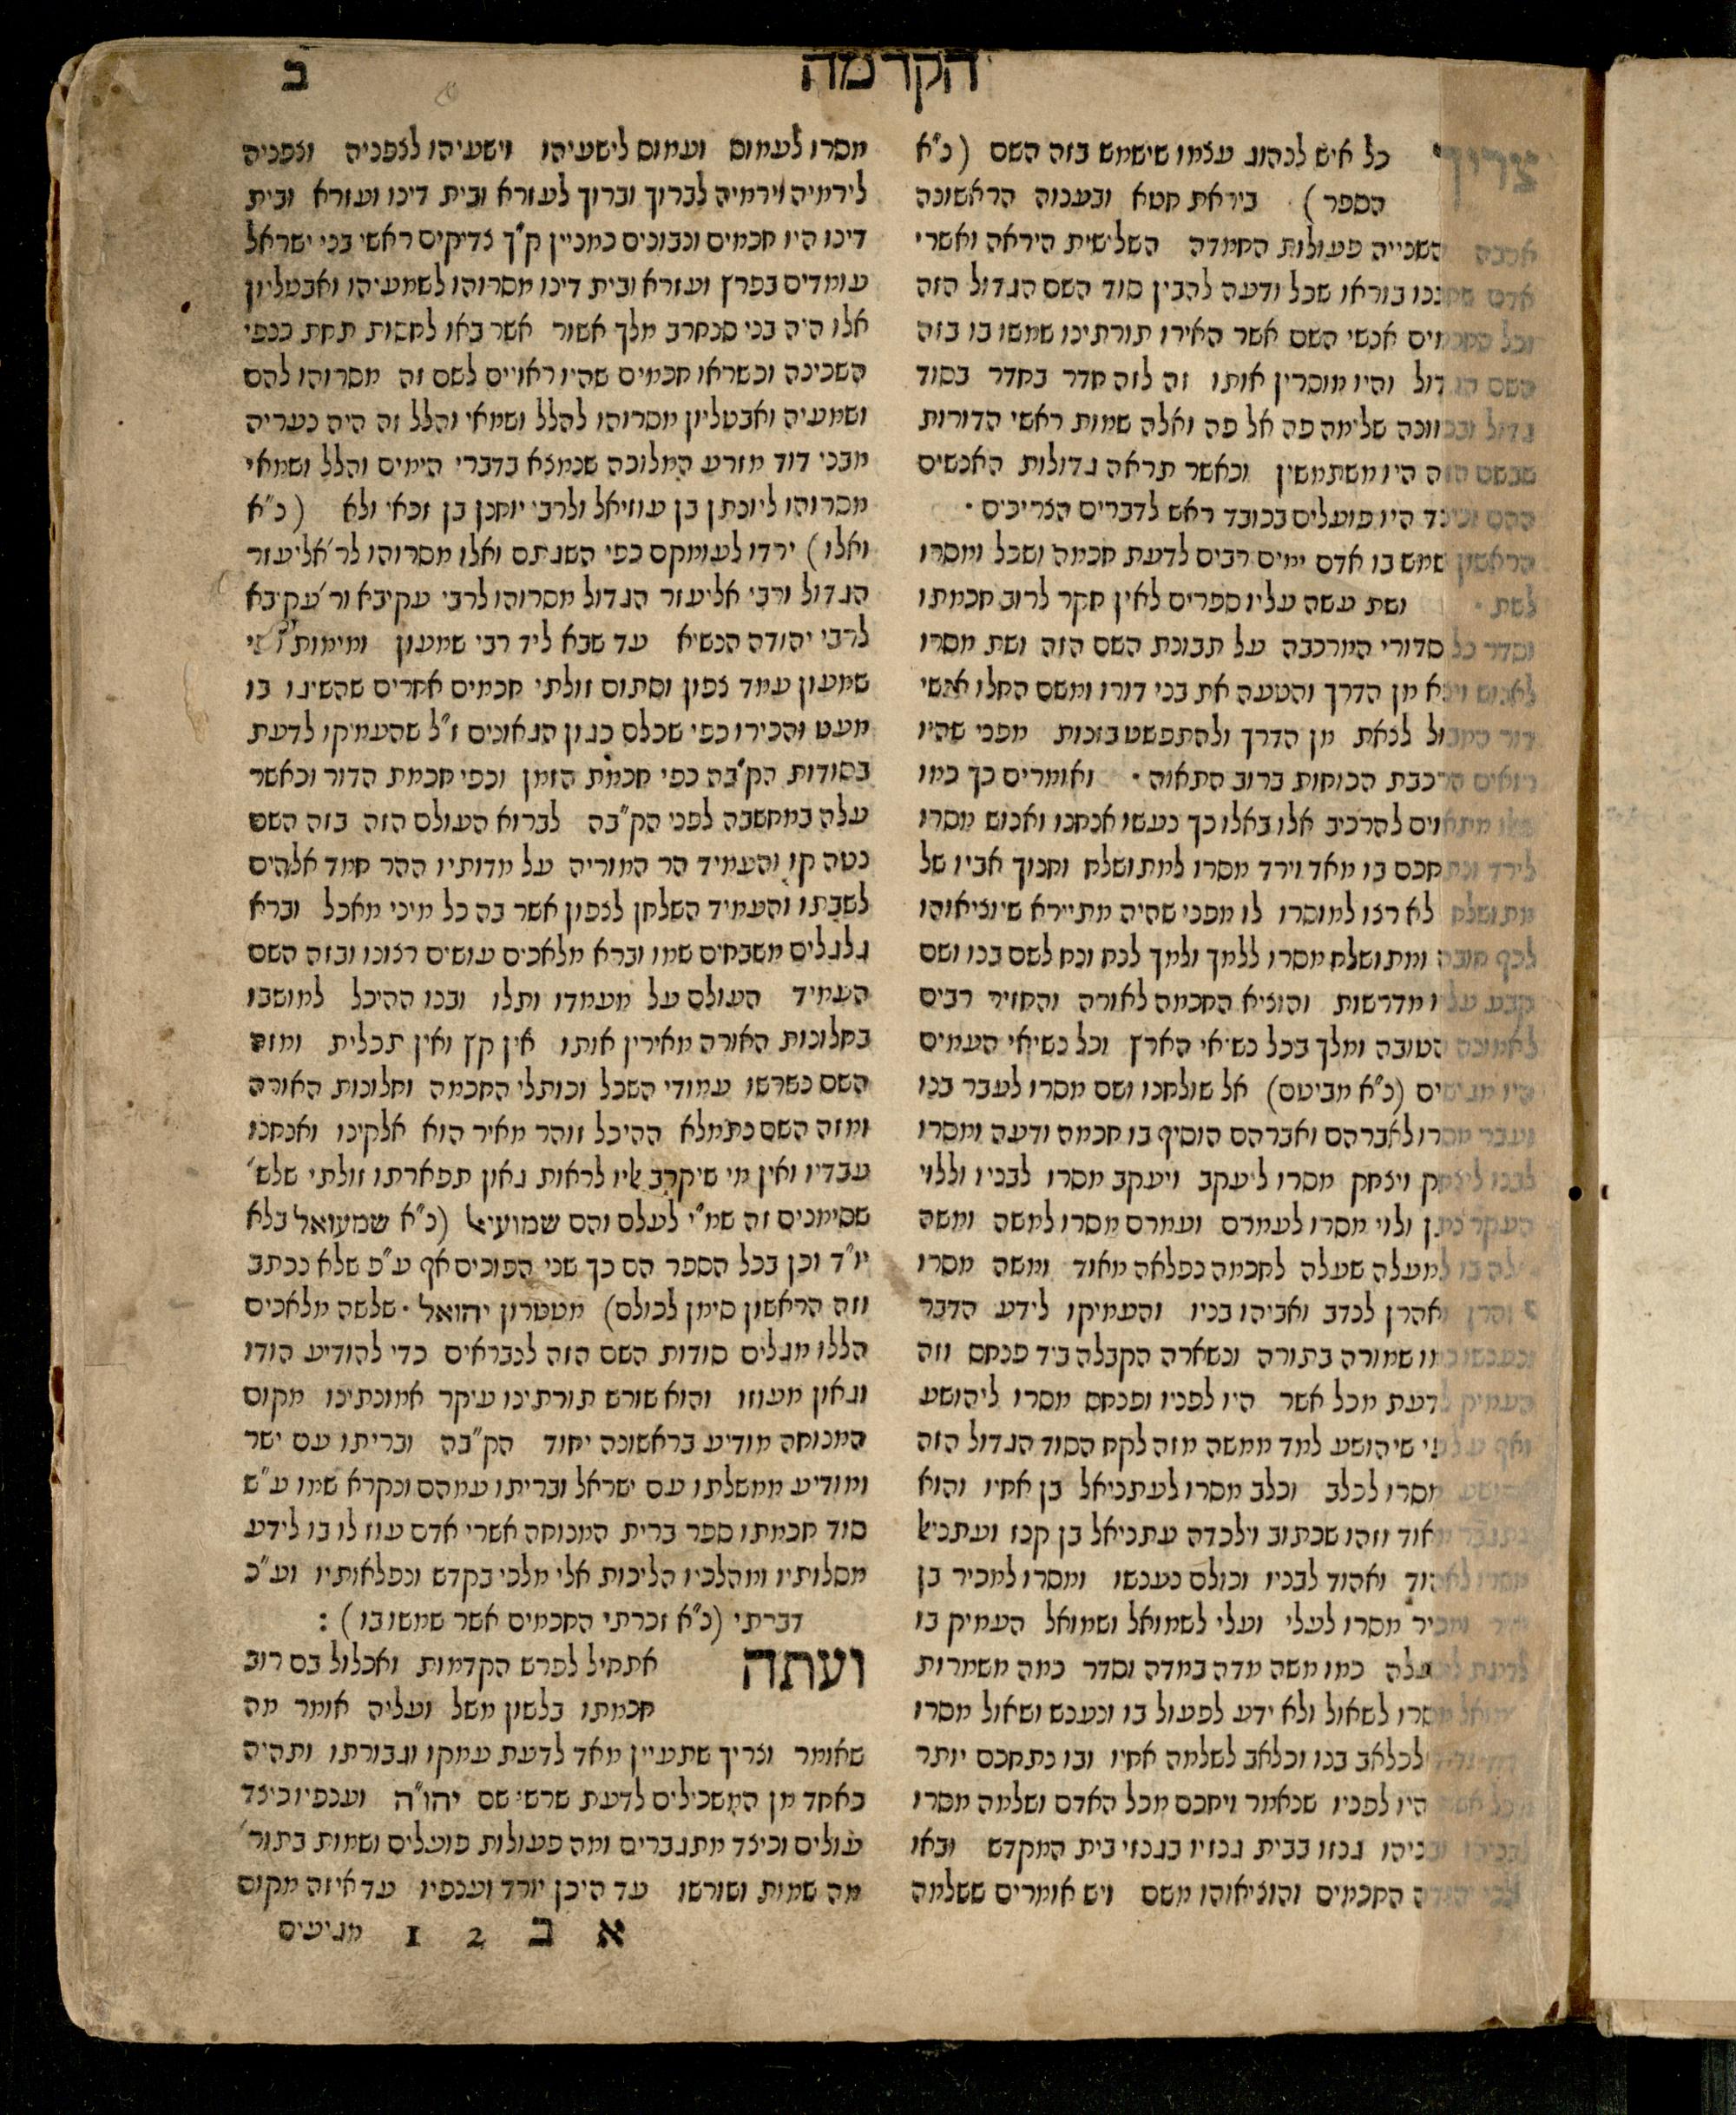 הקדמה
ב
צריך כל איש לנהוג עצמו שישמש בזה השם (נ"א
הספר) ביראת חטא ובענוה הראשונה
השנייה פעולות החמדה השלישית היראה ואשרי
אדם שחננו בוראו שכל ודעה להבין סוד השם הגדול הזה
וכל החכמים אנשי השם אשר האירו תורתינו שמשו בו בזה
השם הגדול והיו מוסרין אותו זה לזה חדר בחדר בסוד
גדול ובכוונה שלימה פה אל פה ואלה שמות ראשי הדורות
שבשם הזה היו משתמשין וכאשר תראה גדולות האנשים
ההם וכיצד היו פועלים בכובד ראש לדברים הצריכים ·
הראשון שמש בו אדם ימים רבים לדעת חכמה ושכל ומסרו
לשת · ושת עשה עליו ספרים לאין חקר לרוב חכמתו
וסדר כל סדורי המרכבה על תבונת השם הזה ושת מסרו
לאנוש ויצא מן הדרך והטעה את בני דורו ומשם החלו אנשי
דור המבול לצאת מן הדרך ולהתפשט בזנות מפני שהיו
רואים הרכבת הכוחות ברוב התאוה · ואומרים כך כמו
מתאוים להרכיב אלו באלו כך נעשו אנחנו ואנוש מסרו
לירד ונתחכם בו מאד וירד מסרו למתושלח וחנוך אביו של
מתושלח לא רצו למוסרו לו מפני שהיה מתיירא שיוציאוהו
לכף חובה ומתושלח מסרו ללמך ולמך לנח ונח לשם בנו ושם
קבע עליו מדרשות והוציא החכמה לאורה והחזיר רבים
לאמונה הטובה ומלך בכל נשיאי הארץ וכל נשיאי העמים
היו מגישים (נ"א מביטם) אל שולחנו ושם מסרו לעבר בנו
ועבר מסרו לאברהם ואברהם הוסיף בו חכמה ודעה ומסרו
לבנו ליצחק ויצחק מסרו ליעקב ויעקב מסרו לבניו וללוי
העקר נתן ולוי מסרו לעמרם ועמרם מסרו למשה ומשה
עלה בו למעלה שעלה לחכמה נפלאה מאוד ומשה מסרו
ואהרן לנדב ואביהו בניו והעמיקו לידע הדבר
ונענשו כמו שמורה בתורה ונשארה הקבלה ביד פנחס וזה
העמיק לדעת מכל אשר היו לפניו ופנחס מסרו ליהושע
ואף על פי שיהושע למד ממשה מזה לקח הסוד הגדול הזה
ויהושע מסרו לכלב וכלב מסרו לעתניאל בן אחיו והוא
נתגבר מאוד וזהו שכתוב וילכדה עתניאל בן קנז ועתניאל
מסרו לאהוד ואהוד לבניו וכולם נענשו ומסרו למכיר בן
ומכיר מסרו לעלי ועלי לשמואל ושמואל העמיק בו
למעלה כמו משה מדה במדה וסדר כמה משמרות
מסרו לשאול ולא ידע לפעול בו ונענש ושאול מסרו
לכלאב בנו וכלאב לשלמה אחיו ובו נתחכם יותר
מכל אשר היו לפניו שנאמר ויחכם מכל האדם ושלמה מסרו
גנזו בבית גנזיו בגנזי בית המקדש ובאו
החכמים והוציאוהו משם ויש אומרים ששלמה
מסרו לעמוס ועמוס לישעיהו וישעיהו לצפניה וצפניה
לירמיה וירמיה לברוך וברוך לעזרא ובית דינו ועזרא ובית
דינו היו חכמים ונבונים כמניין ק"ך צדיקים ראשי בני ישראל
עומדים בפרץ ועזרא ובית דינו מסרוהו לשמעיהו ואבטליון
אלו היה בני סנחרב מלך אשור אשר באו לחסות תחת כנפי
השכינה וכשראו חכמים שהיו ראויים לשם זה מסרוהו להם
ושמעיה ואבטליון מסרוהו להלל ושמאי והלל זה היה נעריה
מבני דוד מזרע המלוכה שנמצא בדברי הימים והלל ושמאי
מסרוהו ליונתן בן עוזיאל ולרבי יוחנן בן זכאי ולא (נ"א
ואלו) ירדו לעומקם כפי השגתם ואלו מסרוהו לר' אליעזר
הגדול ורבי אליעזר הגדול מסרוהו לרבי עקיבא ור' עקיבא
לרבי יהודה הנשיא עד שבא ליד רבי שמעון ומימות רבי
שמעון עמד צפון וסתום זולתי חכמים אחרים שהשיגו בו
מעט והכירו כפי שכלם כגון הגאונים ז"ל שהעמיקו לדעת
בסודות הק"בה כפי חכמת הזמן וכפי חכמת הדור וכאשר
עלה במחשבה לפני הק"בה לברוא העולם הזה בזה השם
נטה קו והעמיד הר המוריה על מדותיו ההר חמד אלהים
לשבתו והעמיד השלחן לצפון אשר בה כל מיני מאכל וברא
גלגלים משבחים שמו וברא מלאכים עושים רצונו ובזה השם
העמיד העולם על מעמדו ותלו ובנו ההיכל למושבו
בחלונות האורה מאירין אותו אין קץ ואין תכלית ומזה
השם נשרשו עמודי השכל וכותלי החכמה וחלונות האורה
ומזה השם נתמלא ההיכל זוהר מאיר הוא אלקינו ואנחנו
עבדיו ואין מי שיקרב אליו לראות גאון תפארתו זולתי שלש'
שסימנים זה שמ"י לעלם והם שמועיאל (נ"א שמעואל בלא
יו"ד וכן בכל הספר הם כך שני הפוכים אף ע"פ שלא נכתב
וזה הראשון סימן לכולם) מטטרון יהואל · שלשה מלאכים
הללו מגלים סודות השם הזה לנבראים כדי להודיע הודו
וגאון מעוזו והוא שורש תורתינו עיקר אמונתינו מקום
המנוחה מודיע בראשונה יחוד הק"בה ובריתו עם ישר
ומודיע ממשלתו עם ישראל ובריתו עמהם ונקרא שמו ע"ש
סוד חכמתו ספר ברית המנוחה אשרי אדם עוז לו בו לידע
מסלותיו ומהלכיו הליכות אלי מלכי בקדש ונפלאותיו וע"כ
דברתי (נ"א זכרתי החכמים אשר שמשו בו) :
ועתה אתחיל לפרש הקדמות ואכלול בם רוב
חכמתו בלשון משל ועליה אומר מה
שאומר וצריך שתעיין מאד לדעת עמקו וגבורתו ותהיה
כאחד מן המשכילים לדעת שרשי שם יהו"ה וענפיו כיצד
עולים וכיצד מתגברים ומה פעולות פועלים ושמות בתור'
מה שמות ושורשו עד היכן יורד וענפיו עד איזה מקום
א ב 2 1 מגיעים